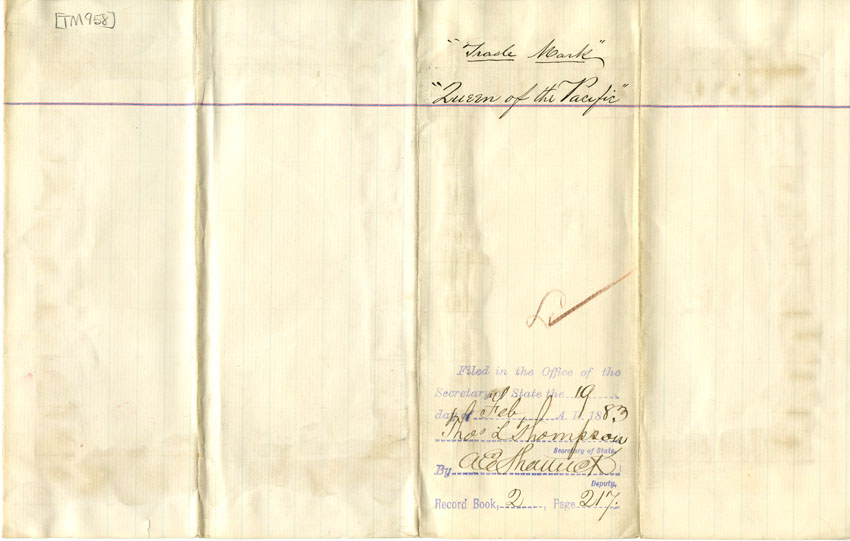 [TM958]
"Trade Mark"
"Queen of the Pacific"
Filed in the Office of the
Secretary of State the 19
day of Feb, A. D. 1883
Thos L Thompson
Secretary of State.
By A E Shattuck
Deputy.
Record Book, 2, Page 217.